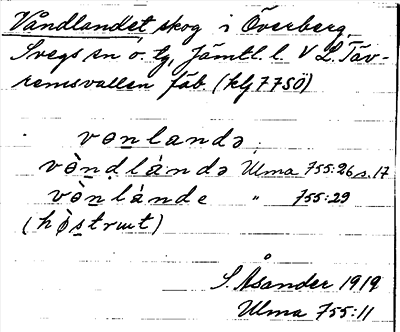 Våndlandet skog i Överberg
Svegs sn o. tg, Jämtl. l. V L. Täv-
remsvallen fäb. (klj 7 7 SÖ)
vɵnlandə
vɵ̀nḍlándə Ulma 755:26 s. 17
vɵ̀nlánde " 755:29
S. Åsander 1919
Ulma 755:11